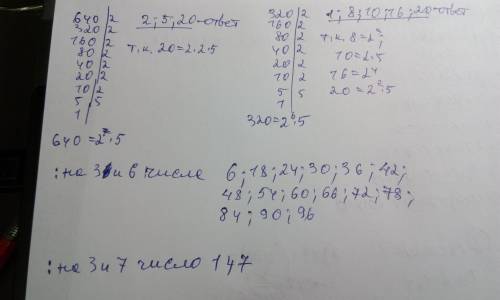 640|2 2; 5; 20 - ответ
320|2
160|2
80|2 т.к. 20=2·2·5
40|2
20|2
10|2
5|5
1|
640=2⁷·5
320|2 2; 8; 10; 16; 20 - ответ
160|2
80|2 т.к. 8=2³;
40|2 10=2·5
20|2 16=2⁴
10|2 20=2²·5
5|5
1|
320=2⁶·5
: на 3 и 6 числа 6; 18; 24; 30; 36; 42;
48; 54; 60; 66; 72; 78;
84; 90; 96
: на 3 и 7 число 147